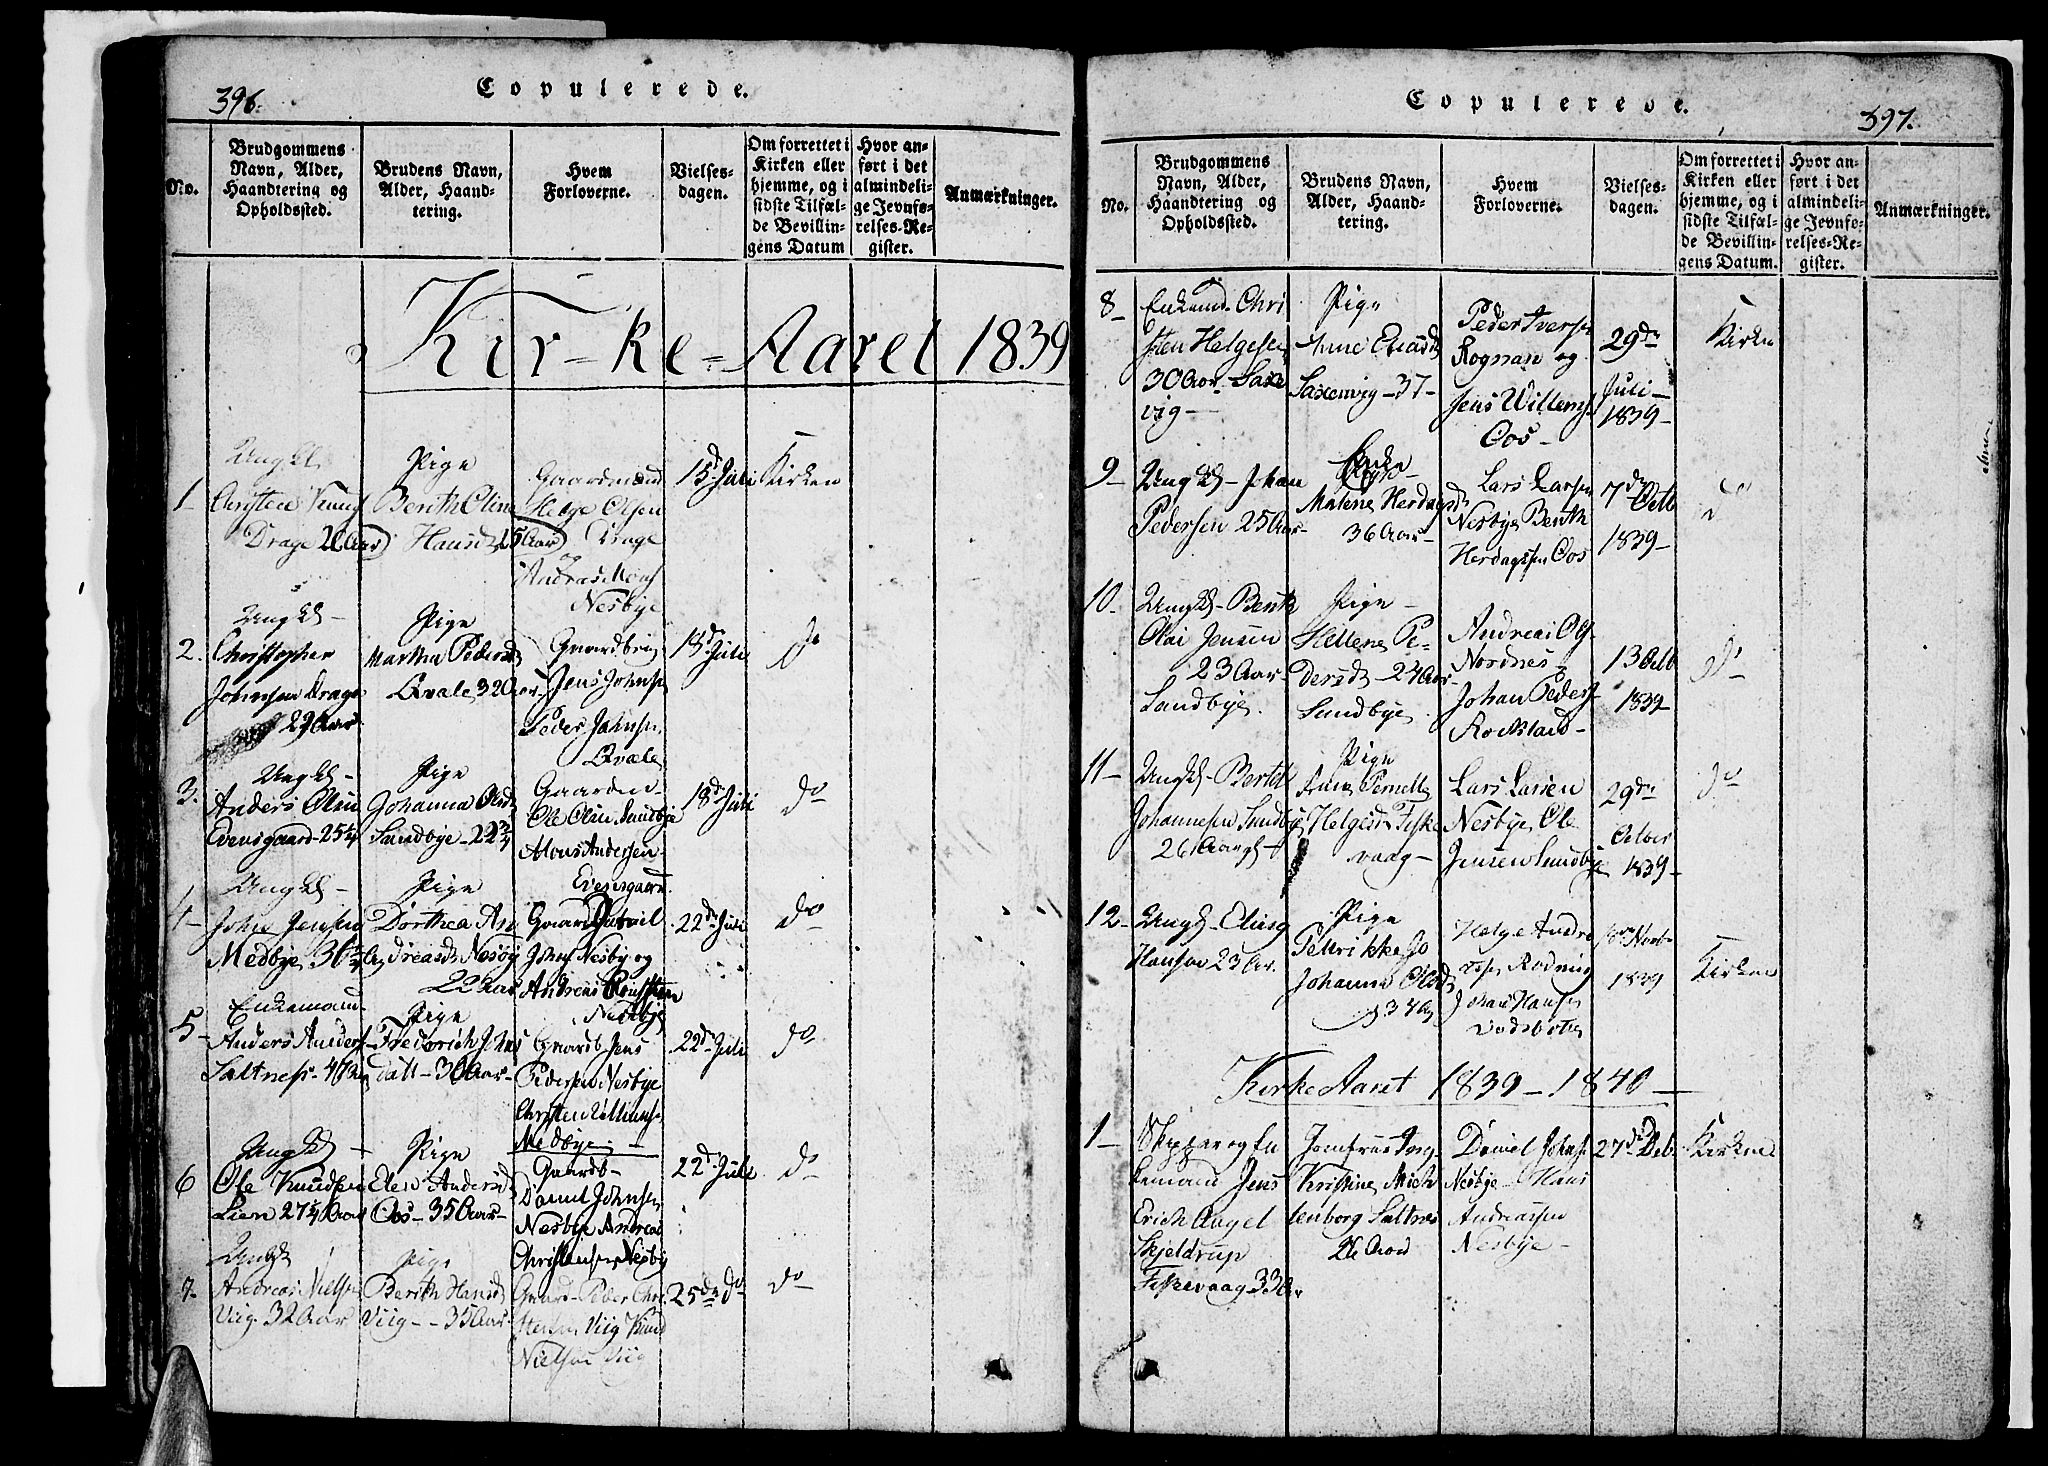 396.
Copulerede.
No.
Brudgommens
Navn, Alder,
Haandtering og
Opholdssted.
Brudens Navn,
Alder, Haand-
tering.
Hvem
Forloverne.
Vielses-
dagen.
Om forrettet i
Kirken eller
hjemme, og i
sidste Tilfæl-
de Bevillin-
gens Datum
Hvor an-
ført i det
almindeli-
ge Jevnfø-
relses-Re-
gister.
Anmærkninger.
Kir-ke-Aaret 1839
1
Ungkl
Drage
Pige
Berith Oline
Hansd 25 Aar
Gaardmænd
Helge Olsen
Drage
og
Nesbye
15d Juli
Kirken
2.
Ungkl -
Christopher
Johnsen Drage
29 Aar
Pige
Martha Pedersd
Qvale 32 Aar
Gaardbrug
Jens Johnsen
Peder Johnsen
Qvale
18d Juli
do
3.
Ungkl -
Anders Olsen
Evensgaard - 25 1/4
Pige
Johanna Olsd
Sundbye - 22 3/4
Gaardm -
Ole Olsen Sundbye
Mons Andersen
Evensgaard
18d Juli
do
4 -
Ungkl -
John Jensen
Medbye
Pige
Dorthea An
dreasd Nesby
22 Aar
Johns Nesby og
Andreas
Nesbye
22d Juli
do
5 -
Enkemand
Anders Anders
Saltnes - 47
Pige
Frederich Johns
datt - 30 Aar -
Gaardb Jens
Pedersen Nesbye
Christen
Medbye -
22d Juli
do
6
Ungkl -
Ole Knudsen
Lien 27 1/4 Aar
Pige
Elen Andersd
Oos - 35 Aar -
Gaardb -
Daniel Johnsen
Nesbye Andreas
Christensen Nesby
22d Juli
do
7 -
Ungkl
Andreas Nielsen
Viig 32 Aar
Pige
Berith Hansd
Viig - - 35 Aar -
Gaard - Peder Chri
stensen Viig Knud
Nielsen Viig
25d do
do
Copulerede.
397.
No.
Brudgommens
Navn, Alder,
Haandtering og
Opholdssted.
Brudens Navn,
Alder, Haand-
tering.
Hvem
Forloverne.
Vielses-
dagen.
Om forrettet i
Kirken eller
hjemme, og i
sidste Tilfæl-
de Bevillin-
gens Datum.
Hvor an-
ført i det
almindeli-
ge Jevnfø-
relses-Re-
gister.
Anmærkninger.
8 -
Enkemd. Chri
sten Helgesen
30 Aar - Saxe
vig -
Pige
Anne
Saxenvig - 37 -
Peder Iversen
Rognan og
Jens Willems
Oos -
29de
Juli -
1839 -
Kirken
9 -
Ungkl - Johan
Pedersen 25 Aar -
Enke
Malene Herdagsd
36 Aar -
Lars Larsen
Nesbye Benth
Herdagssen Oos
7de Octb
1839 -
do
10 -
Ungkl - Benth
Olai Jensen
23 Aar -
Sandbye
Pige -
Hellene Pe-
dersd - 24 Aar -
Sundbye
Andreas Ols
Nordnes
Johan Peders
Rockland -
13 Octb
1839 -
do
11 -
Ungkl - Bertel
Johannesen Sundbye
26 Aar
Pige
Anne Pernelle
Helgesd Fiske
vaag -
Lars Larsen
Nesbye Ole
Jensen Sundbye
29de
Octber
1839 -
do
12 -
Ungkl - Eling
Hansen 23 Ar.
Pige
Petrikke
Johanna Olsd
34
Helge Andre
assen
Johan Hansen
1839
Kirken
Kirke Aaret 1839 - 1840 -
1 -
Skipper og En
kemand Jens
Erich Angel
Skjeldrup
Fiskevaag 33 Aar
Jomfrue
Kristine Mich
lenborg Saltnes
26 Aar
Daniel Johns
Nesbye - Hans
Andreassen
Nesbye -
27de Deb
Kirken